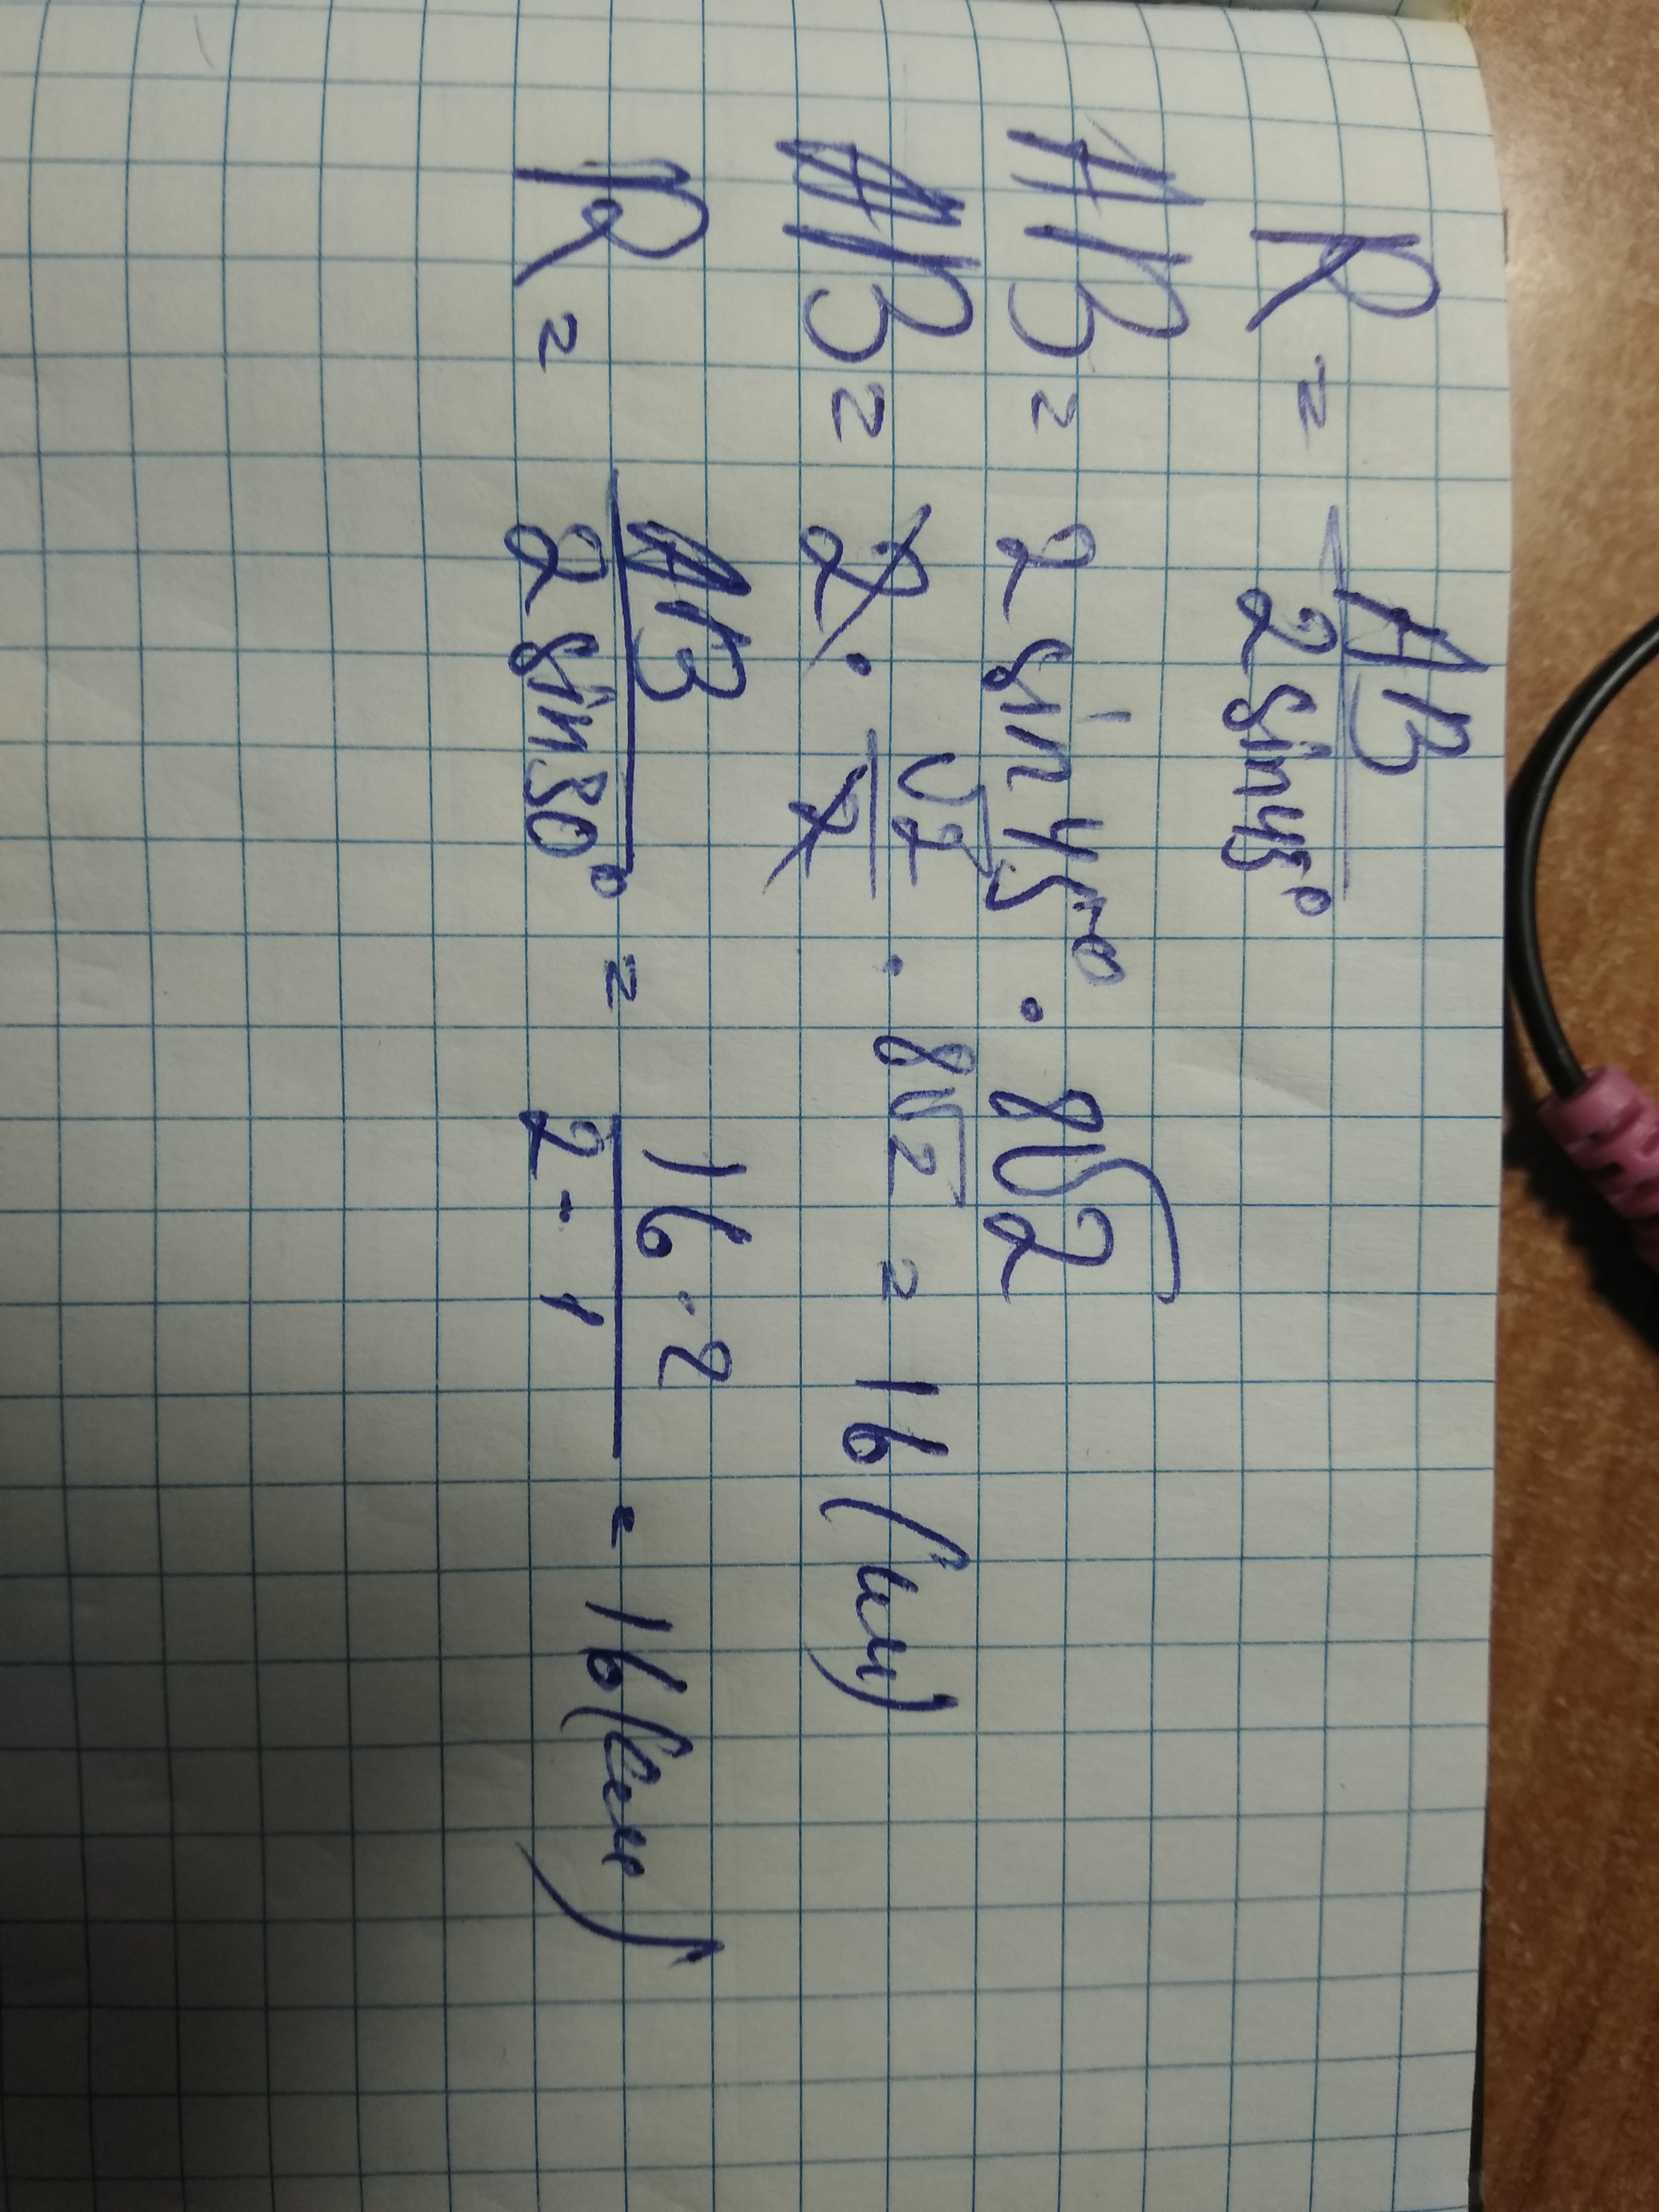 R = AB / 2 sin 45°
AB = 2 sin 45° · 8√2
AB = 2 · √2/2 · 8√2 = 16 (см)
R = AB / 2 sin 30° = 16 · 2 / 2 · 1 = 16 (см)